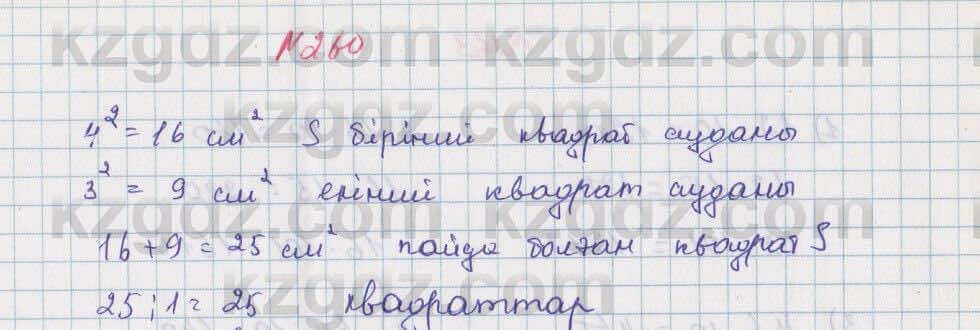 kzgdz.com kzgdz.com
№260
4² = 16 см² S бірінші квадрат ауданы
3² = 9 см² екінші квадрат ауданы
16 + 9 = 25 см² пайда болған квадрат S
25 : 1 = 25 квадраттар